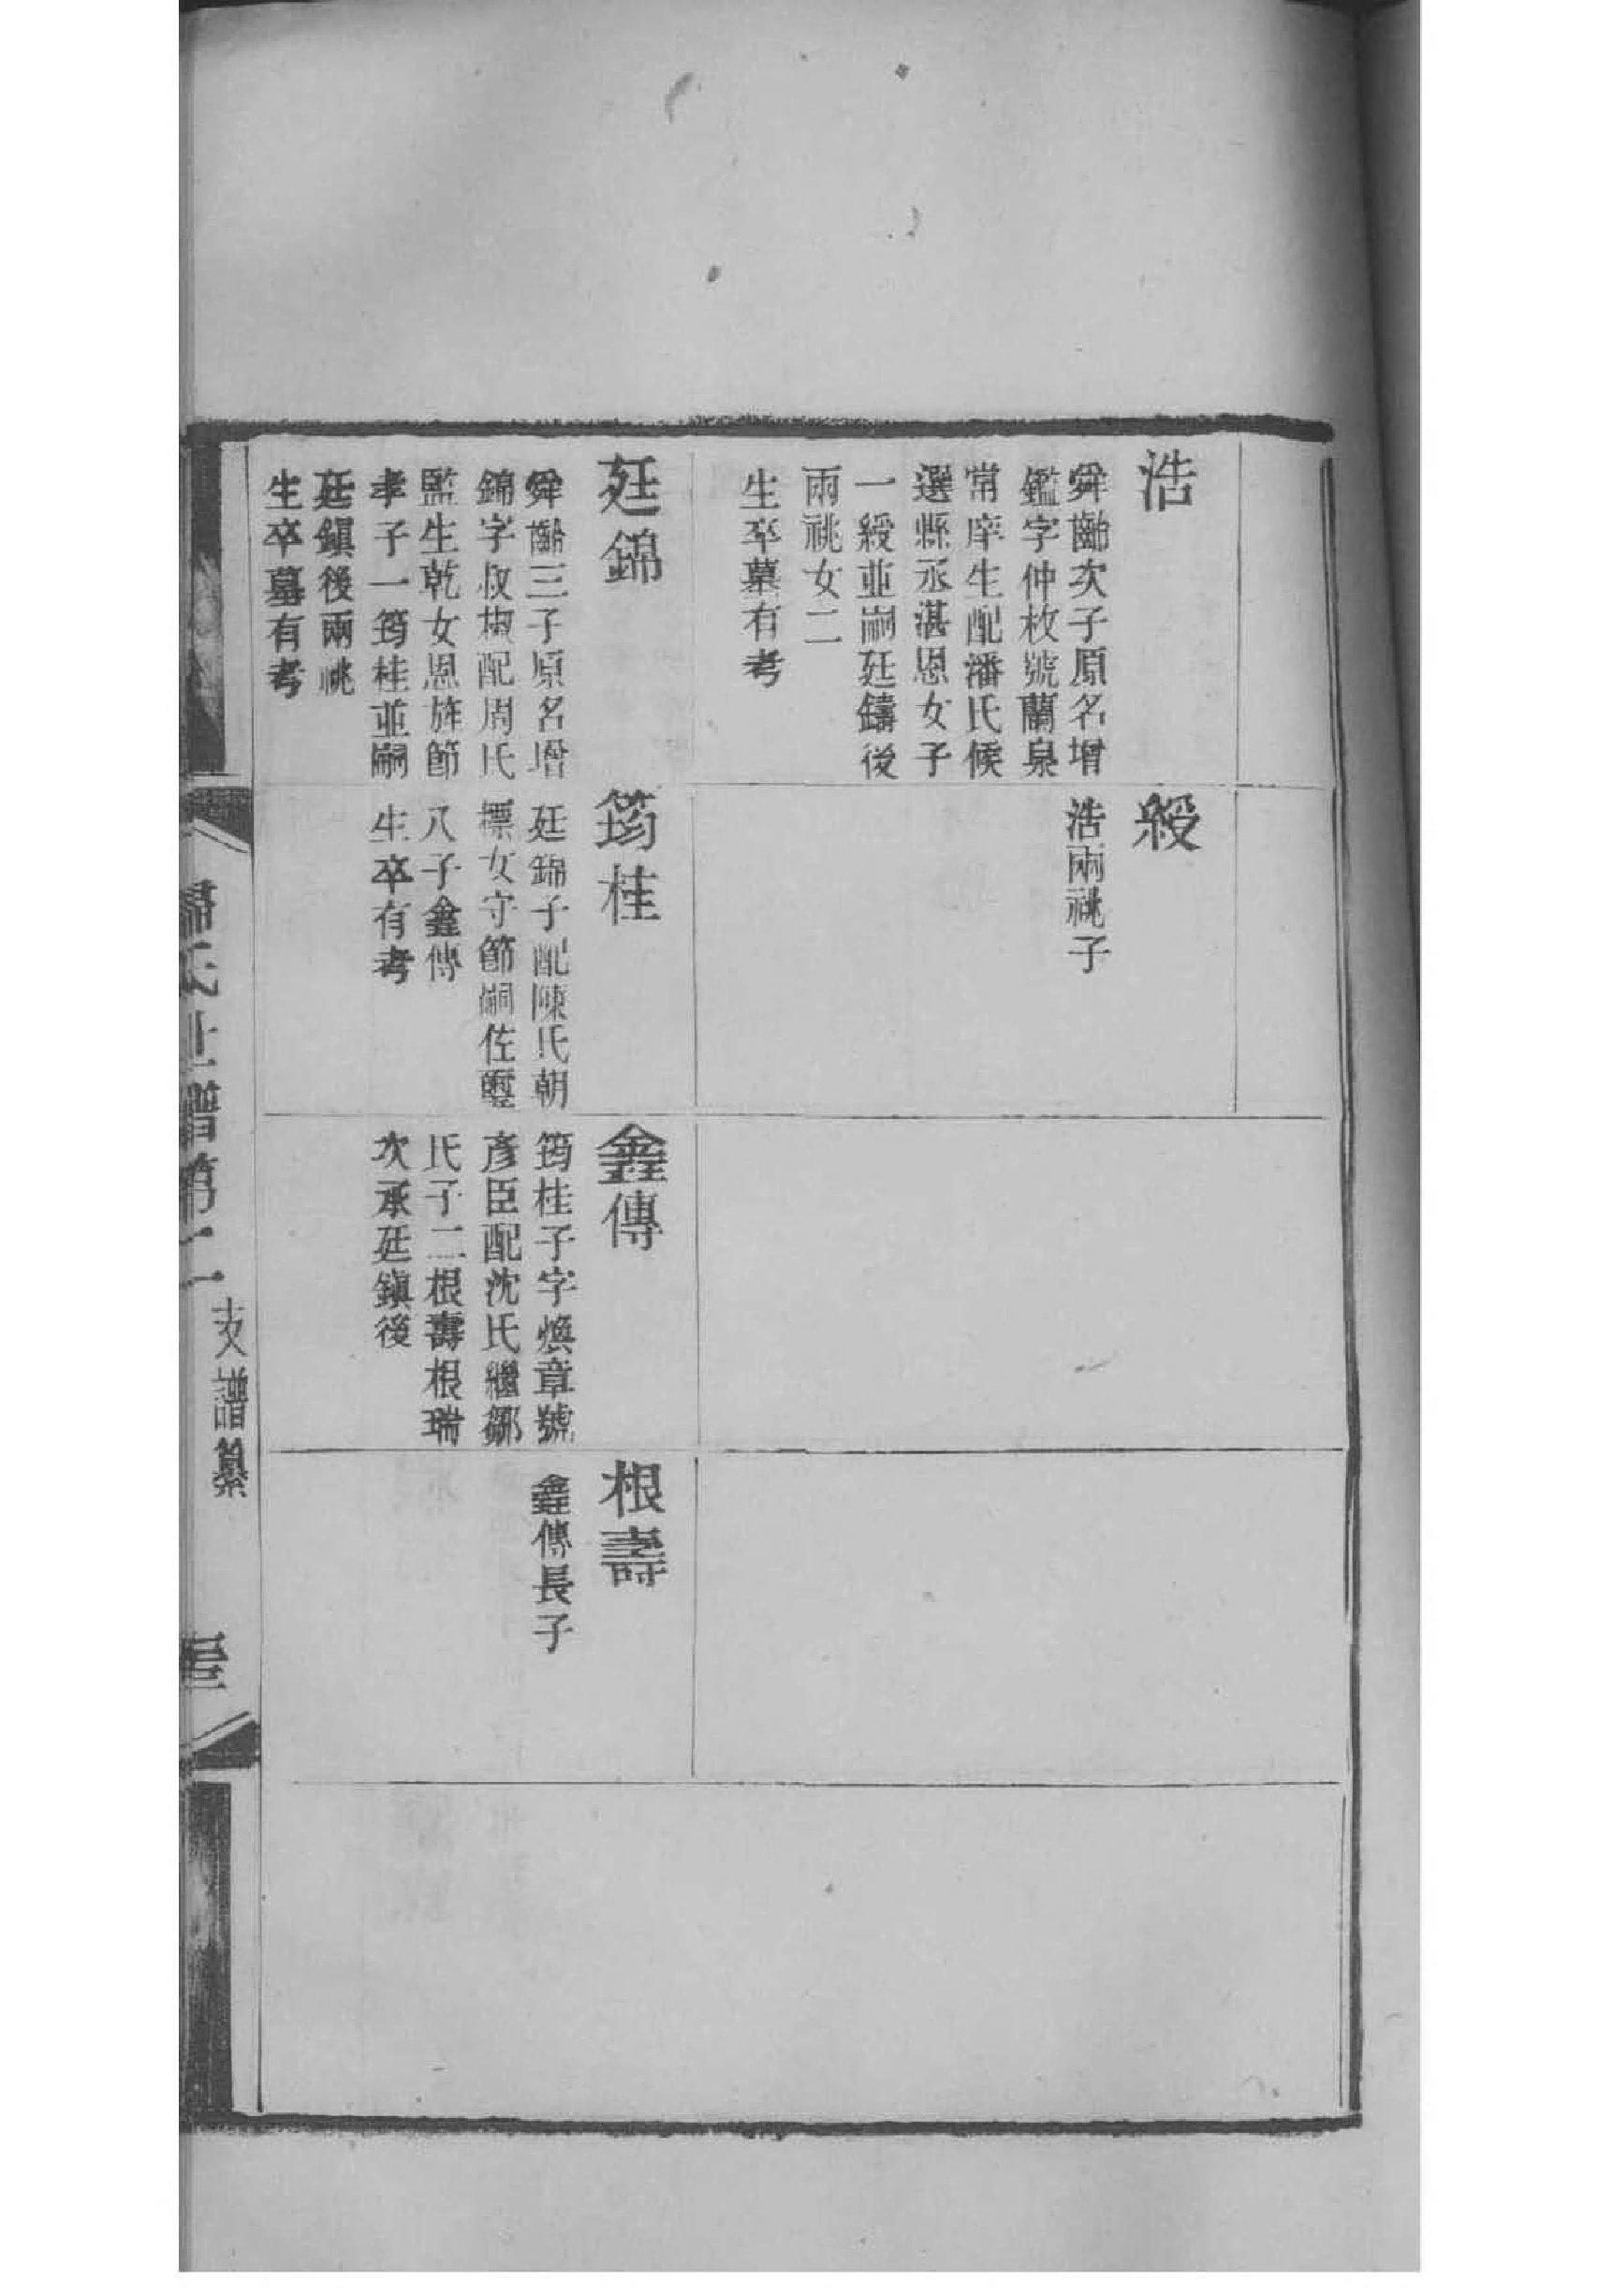 浩
舜齡次子原名增
鑑字仲枚號蘭泉
常庠生配潘氏候
選縣丞湛恩女子
一綬並嗣廷鑄後
兩祧女二
生卒墓有考
綬
浩兩祧子
廷錦
舜齡三子原名增
錦字叔椒配周氏
監生乾女恩旌節
孝子一筠桂並嗣
廷鎮後兩祧
生卒墓有考
筠桂
廷錦子配陳氏朝
標女守節嗣佐璽
八子鑫傳
生卒有考
鑫傳
筠桂子字煥章號
彥臣配沈氏繼鄒
氏子二根壽根瑞
次承廷鎮後
根壽
鑫傳長子
歸氏世譜第二
支譜纂